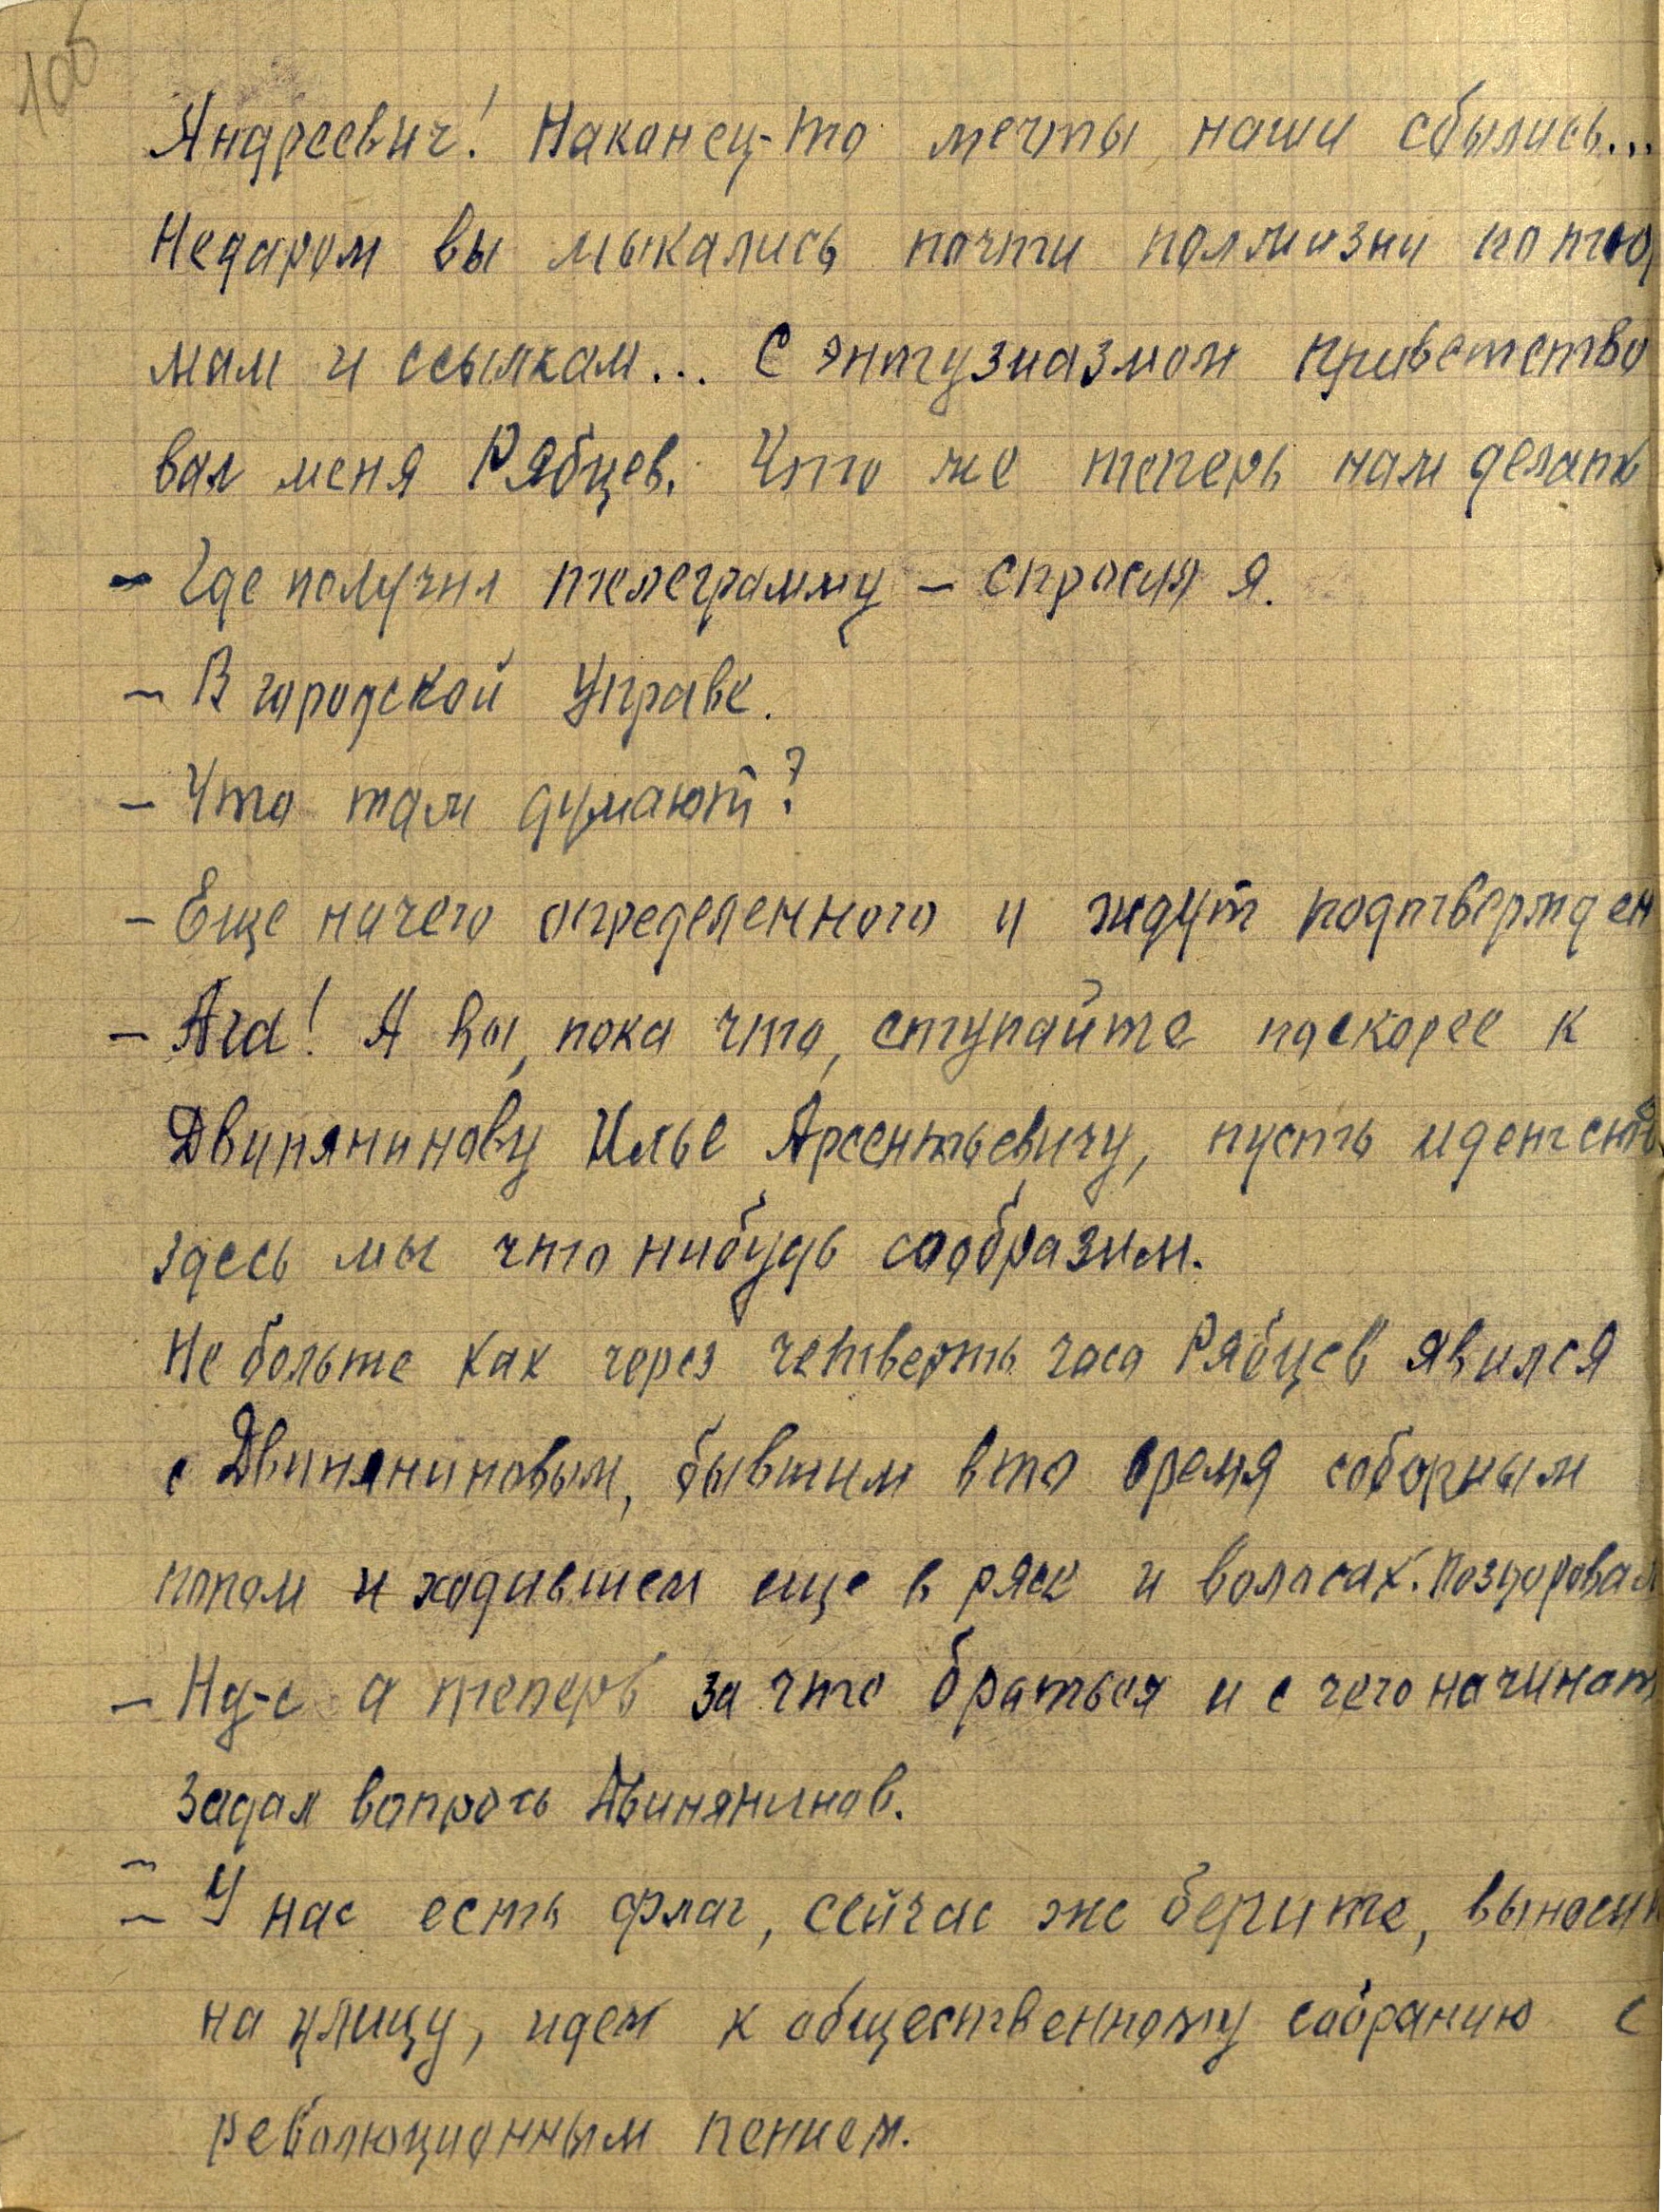 106
Андреевич! Наконец-то мечты наши сбылись...
Недаром вы мыкались почти полжизни по тюр
мам и ссылкам... С энтузиазмом приветство
вал меня Рябцев. Что же теперь нам делать
– Где получил телеграмму – спросил я.
– В городской Управе.
– Что там думают?
– Еще ничего определенного и ждут подтвержден
– Ага! А вы, пока что, ступайте поскорее к
Двинянинову Илье Арсентьевичу, пусть идет сюда
здесь мы что нибудь сообразим.
Не больше как через четверть часа Рябцев явился
с Двиняниновым, бывшим в то время соборным
попом и ходившем еще в рясе и волосах. Поздоровал
– Ну-с а теперь за что браться и с чего начинать
задал вопрось Двинянинов.
– У нас есть флаг, сейчас же берите, выносит
на улицу, идем к общественному собранию с
революционным пением.